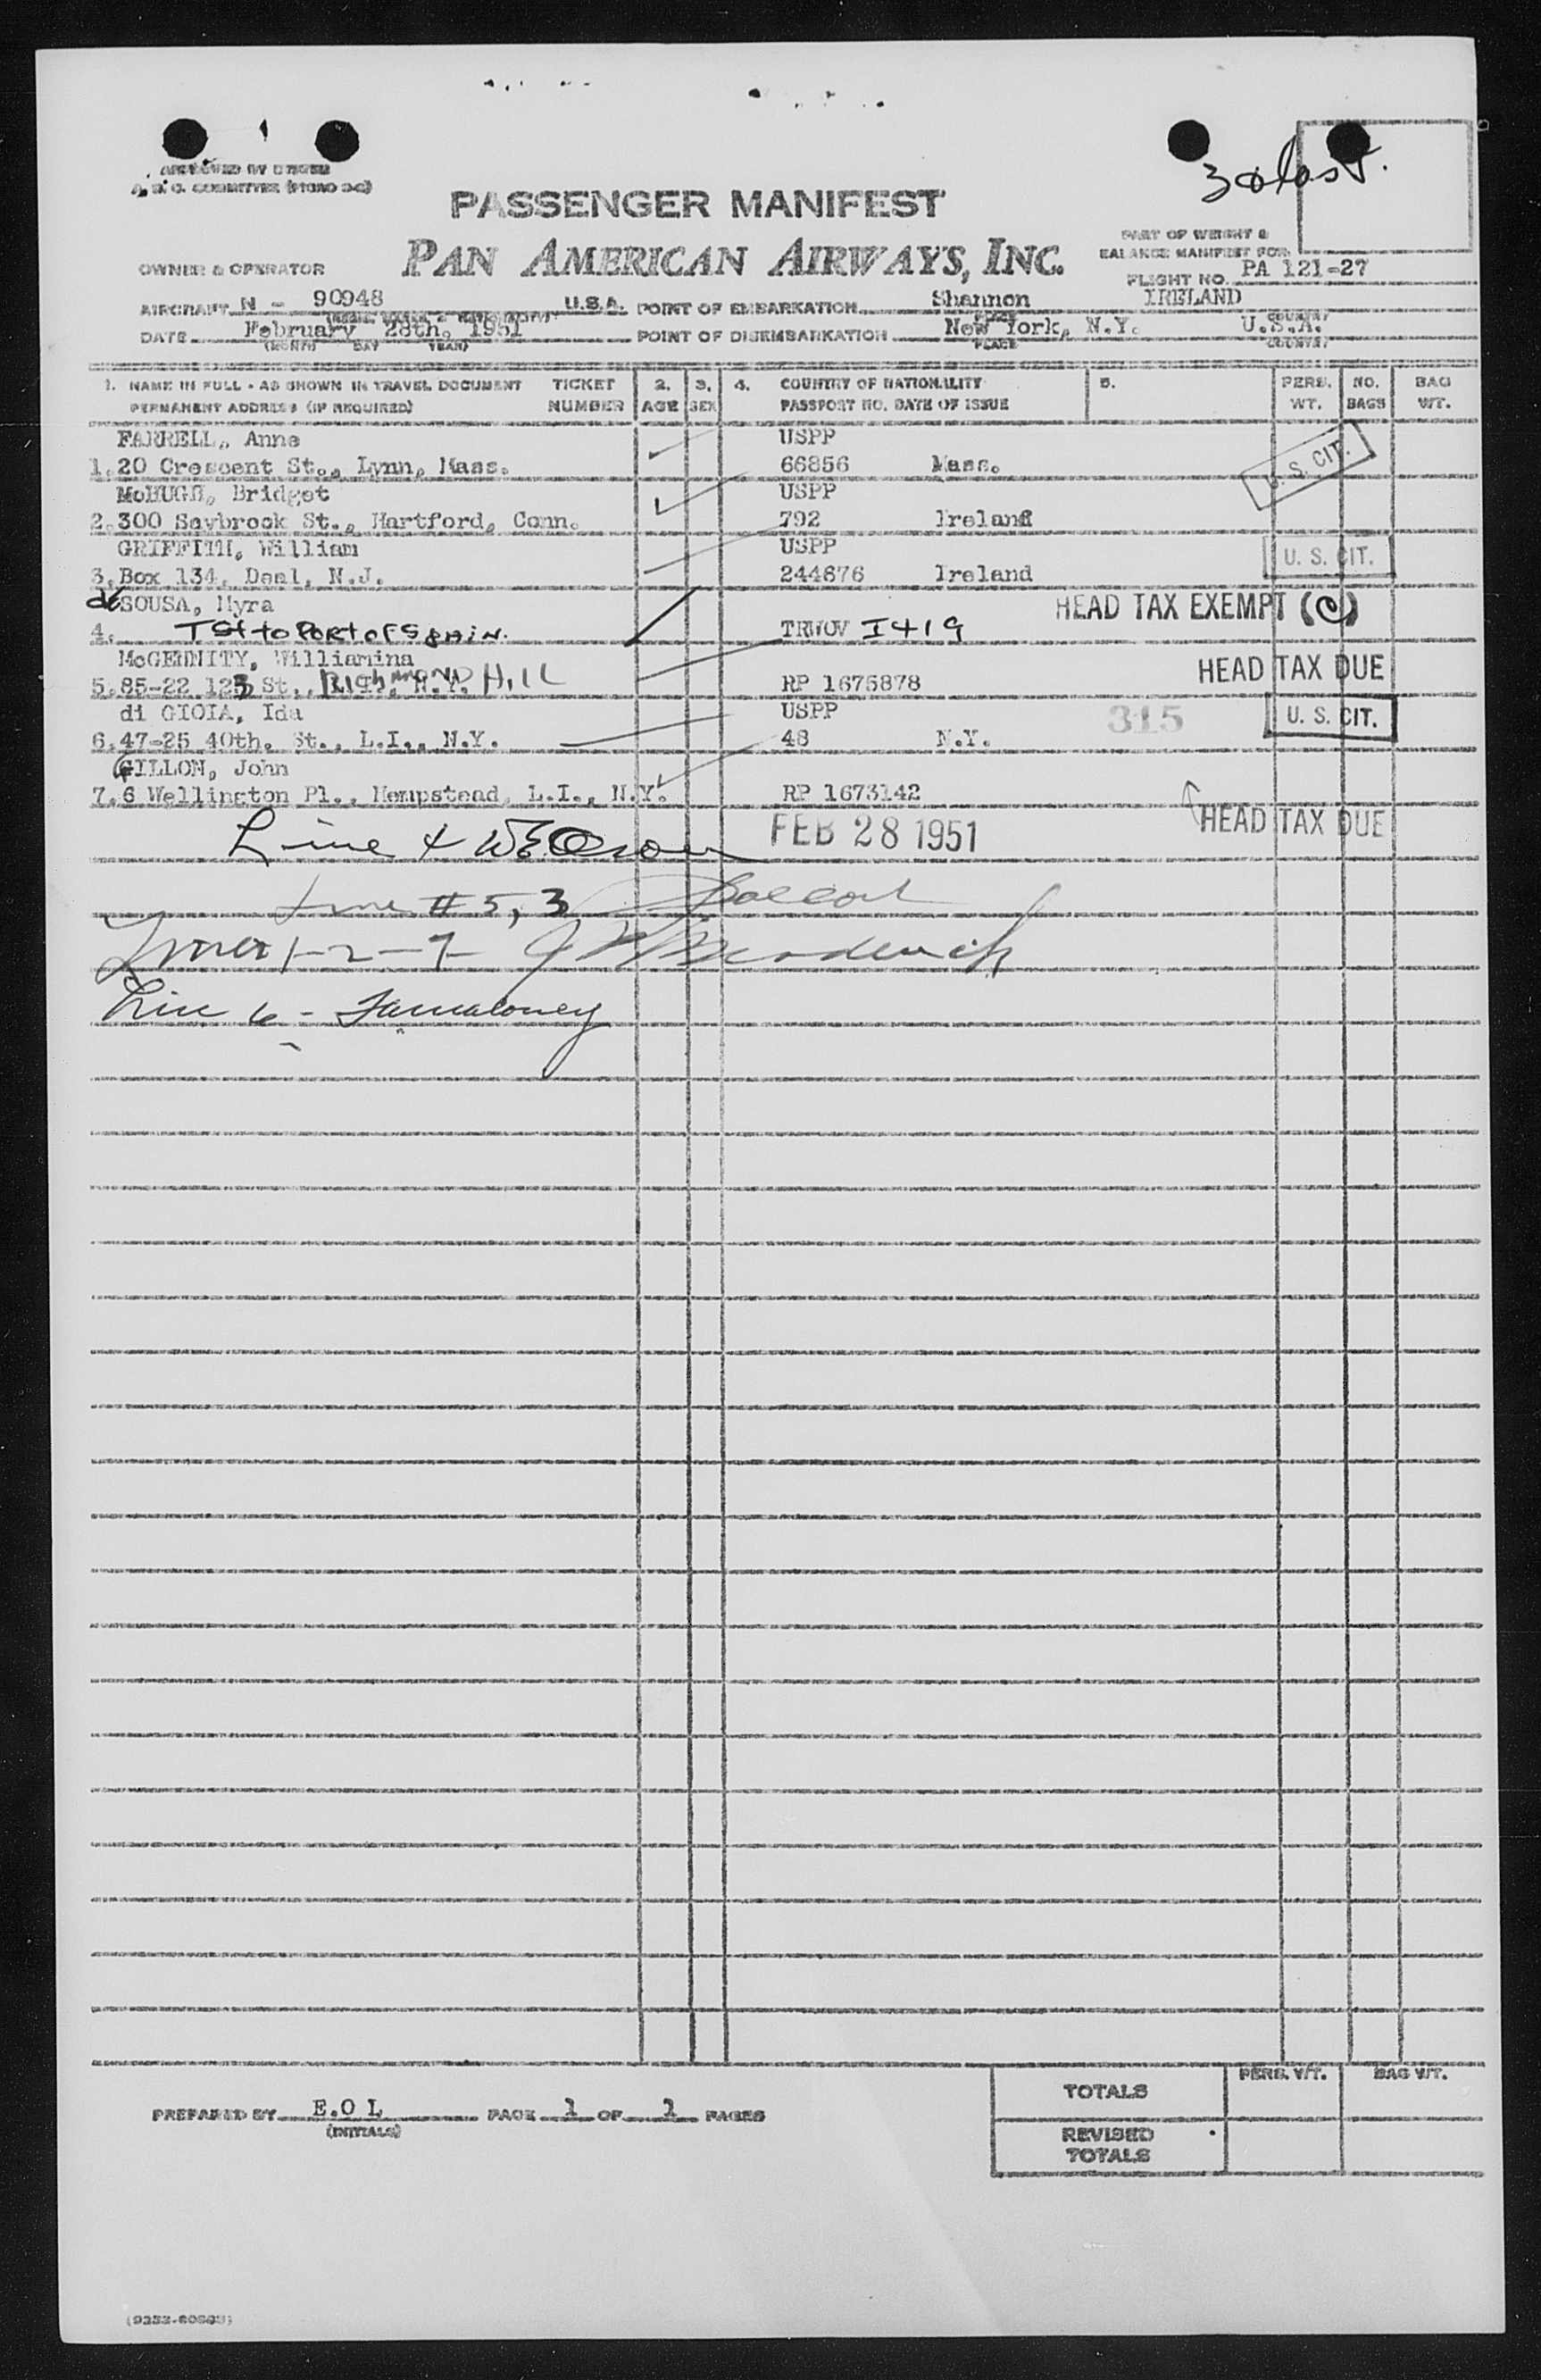 30 last.
PASSENGER MANIFEST
PAN AMERICAN AIRWAYS, INC.
PART OF WEIGHT &
BALANCE MANIFEST FOR
OWNER & OPERATOR
FLIGHT NO. PA 121-27
AIRCRAFT N - 90948 U.S.A. POINT OF EMBARKATION Shannon IRELAND
DATE February 28th, 1951 POINT OF DISEMBARKATION New York, N.Y. U.S.A.
(MONTH) DAY YEAR) PLACE COUNTRY
1. NAME IN FULL - AS SHOWN IN TRAVEL DOCUMENT TICKET 2. 3. 4. COUNTRY OF NATIONALITY 5. PERS. NO. BAG
PERMANENT ADDRESS (IF REQUIRED) NUMBER AGE SEX PASSPORT NO. DATE OF ISSUE WT. BAGS WT.
FARRELL, Anne USPP
1. 20 Crescent St., Lynn, Mass. 66856 Mass. U. S. CIT.
McHUGH, Bridget USPP
2. 300 Saybrook St., Hartford, Conn. 792 Ireland
GRIFFITH, William USPP U. S. CIT.
3. Box 134, Deal, N.J. 244676 Ireland
de SOUSA, Myra HEAD TAX EXEMPT (C)
4. TSI to PORT OF SPAIN. TRWOV I419
McGERNITY, Williamina HEAD TAX DUE
5. 85-22 123 St., RICHMOND HILL N.Y. RP 1675878
di GIOIA, Ida USPP 315 U. S. CIT.
6. 47-25 40th. St., L.I., N.Y. 48 N.Y.
GILLON, John
7. 6 Wellington Pl., Hempstead, L.I., N.Y. RP 1673142
HEAD TAX DUE
Line 4 FEB 28 1951
Line # 5, 3
Lines 1-2-7
Line 6 - Maloney
TOTALS PERS. WT. BAG WT.
PREPARED BY E.O L PAGE 1 OF 1 PAGES
(INITIALS)
REVISED
TOTALS